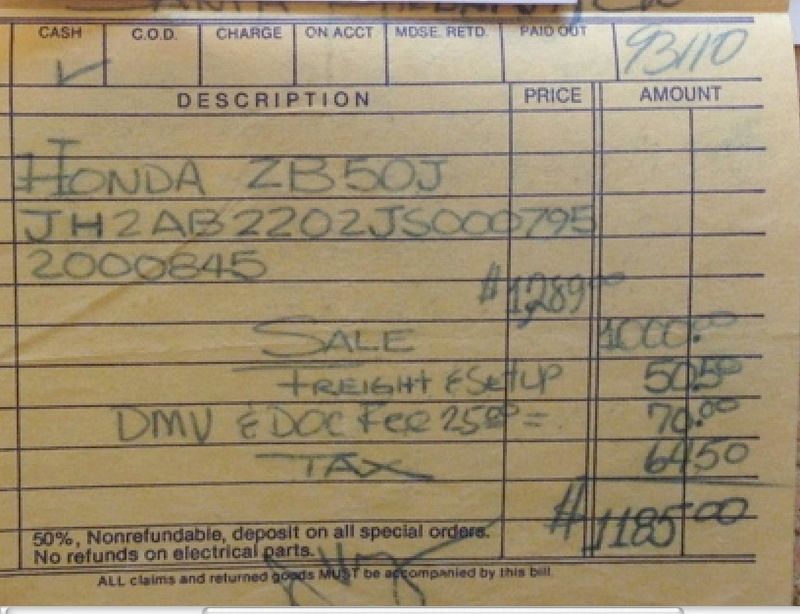 SANTA
CASH C.O.D. CHARGE ON ACCT MDSE. RETD. PAID OUT 93110
✓
DESCRIPTION PRICE AMOUNT
HONDA ZB50J
JH2AB2202JS000795
2000845
#1,289.00
SALE 1000.00
FREIGHT & SETUP 50.50
DMV & DOC FEE 25.00 = 70.00
TAX 64.50
#1185.00
50%, Nonrefundable, deposit on all special orders.
No refunds on electrical parts.
ALL claims and returned goods MUST be accompanied by this bill.